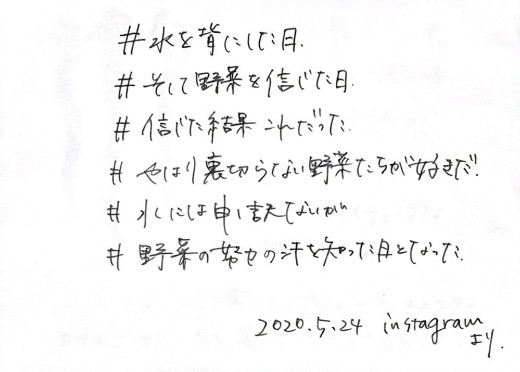 #水を背にした日.
#そして野菜を信じた日.
#信じた結果これだった.
#やはり裏切らない野菜たちが好きだ!
#水には申し訳ないが
#野菜の努力の汗を知った日となった.
2020.5.24 instagram
より.